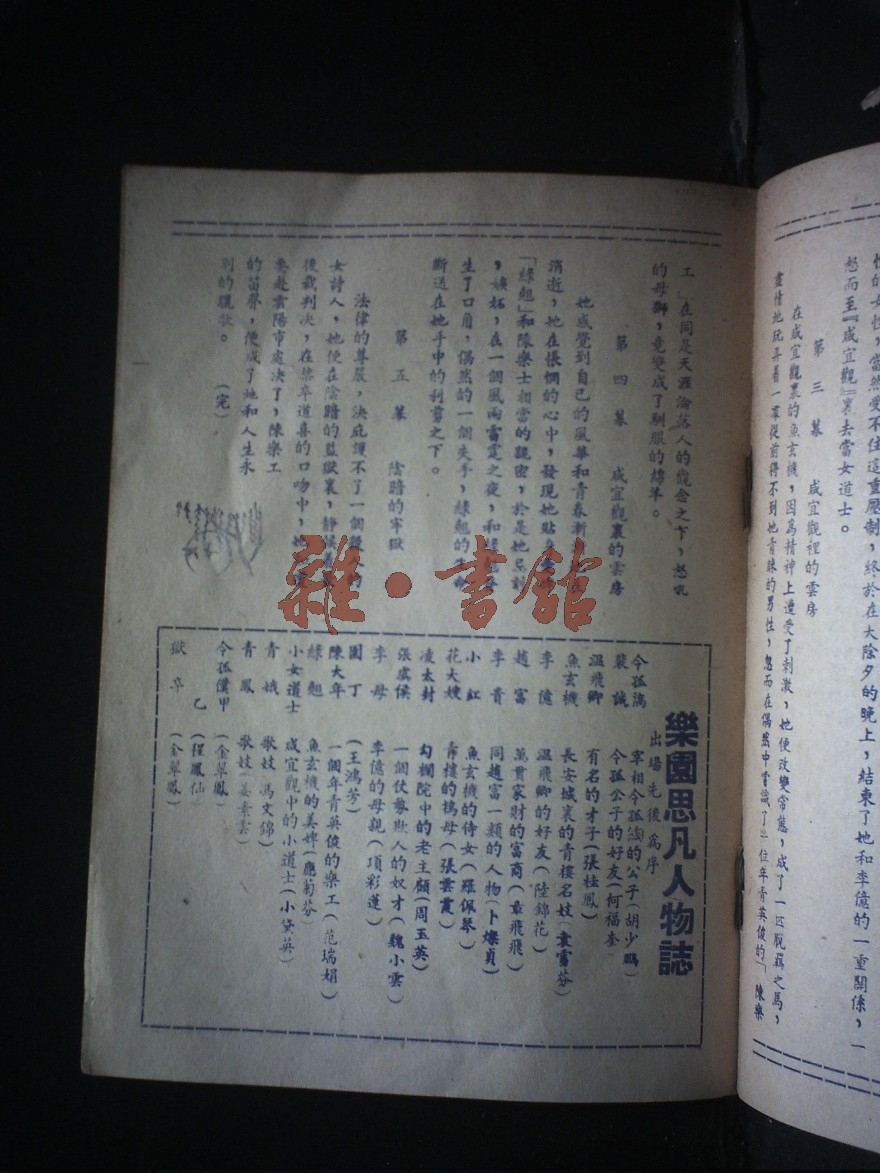 性的女性，當然受不住這重壓制，終於在大陰夕的晚上，結束了她和李億的一重關係，一
愁而至『咸宜觀』裏去當女道士。
第三幕　咸宜觀裡的雲房
在咸宜觀裏的魚玄機，因爲精神上遭受了刺激，她便改變常態，成了一匹脫羈之馬，
盡情地玩弄着一羣從前得不到她青睞的男性，忽而在偶然中賞識了一位年青英俊的「陳樂
工」在同是天涯淪落人的觀念之下，怒吼
的母獅，竟變成了馴服的綿羊。
第四幕　咸宜觀裏的雲房
她感覺到自己的風華和青春漸
消逝，她在悵惘的心中，發現她貼身
「綠翹」和陳樂士相當的親密，於是她忌討
，嫉妬，在一個風雨雷霆之夜，和綠翹發
生了口角，偶然的一個失手，綠翹的生命
斷送在她手中的利剪之下。
第五幕　陰暗的牢獄
法律的尊嚴，決庇護不了一個殺人的
女詩人，她便在陰暗的監獄裏，靜候着最
後裁判決，在禁卒道喜的口吻中，她
要赴雲陽市處決了，陳樂工
的笛聲，便成了她和人生永
別的驪歌。（完）
樂園思凡人物誌
出場先後爲序
令孤滈　宰相令孤綯的公子（胡少鵬）
裴誠　令孤公子的好友（何福奎）
溫飛卿　有名的才子（張桂鳳）
魚玄機　長安城裏的青樓名妓（袁雪芬）
李億　溫飛卿的好友（陸錦花）
趙富　萬貫家財的富商（章飛飛）
李貴　同趙富一類的人物（卜燦貞）
小紅　魚玄機的侍女（羅佩琴）
花大嫂　青樓的鴇母（張雲霞）
凌太封　勾欄院中的老主顧（周玉英）
張虞侯　一個仗勢欺人的奴才（魏小雲）
李母　李億的母親（項彩蓮）
園丁　（王鴻芳）
陳大年　一個年青英俊的樂工（范瑞娟）
綠翹　魚玄機的美婢（應菊芬）
小女道士　咸宜觀中的小道士（小黛英）
青娥　歌妓（馮文錦）
青鳳　歌妓（姜素雲）
令孤僕甲　（金翠鳳）
乙　（程鳳仙）
獄卒　（金翠鳳）
雜·書館